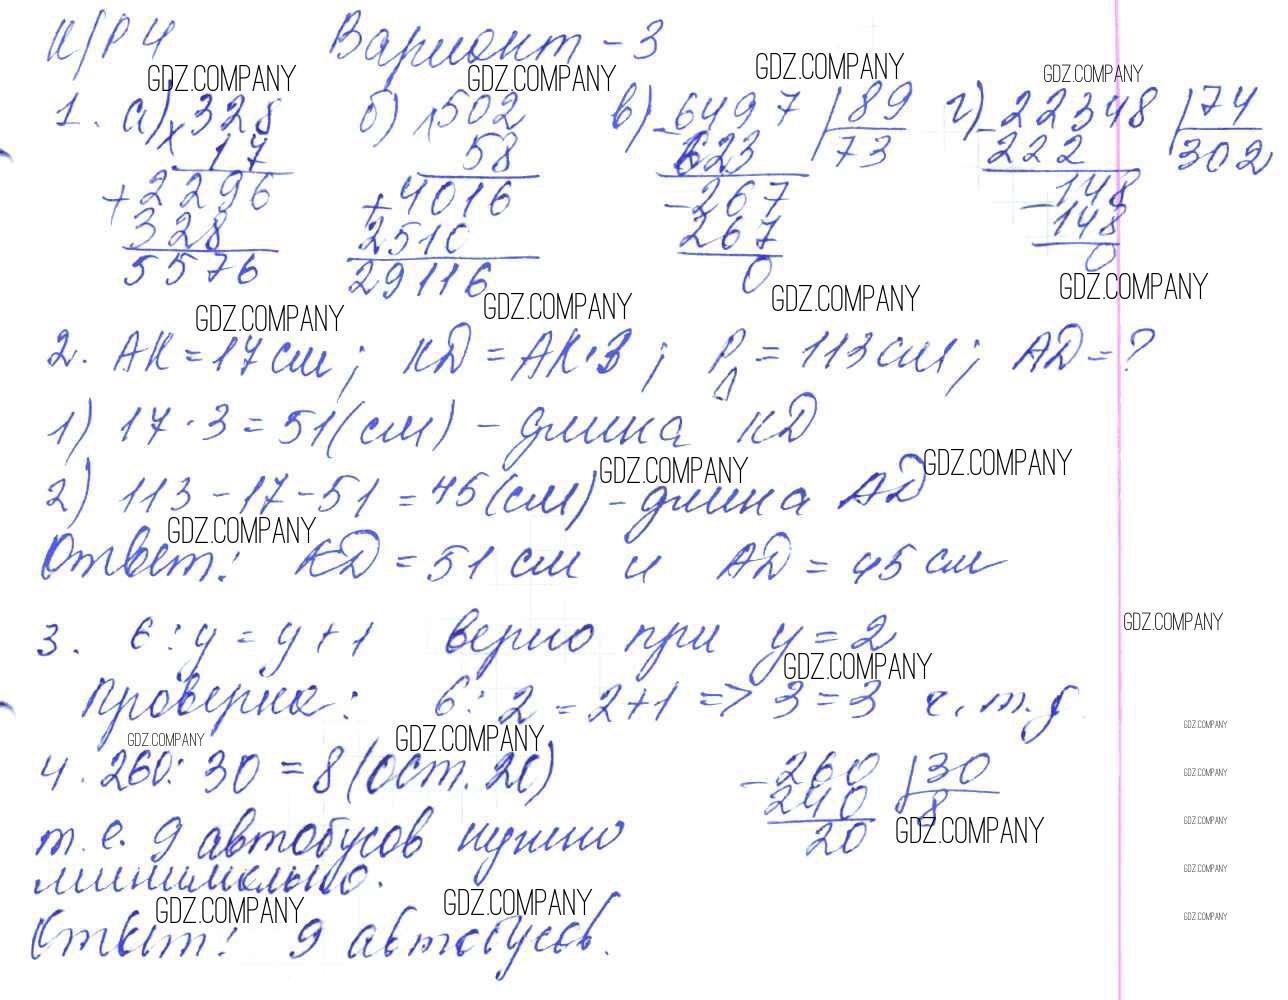 К/Р 4 Вариант - 3
GDZ.COMPANY GDZ.COMPANY GDZ.COMPANY GDZ.COMPANY
1. а) × 328 б) × 502 в) - 6497 | 89 г) - 22348 | 74
17 58 623 73 222 302
+ 2296 + 4016 - 267 - 148
328 2510 267 148
5576 29116 0 0
GDZ.COMPANY GDZ.COMPANY GDZ.COMPANY GDZ.COMPANY
2. АК = 17 см ; КD = АК·3 ; P△ = 113 см ; АD - ?
1) 17 · 3 = 51 (см) - длина КD
GDZ.COMPANY GDZ.COMPANY
2) 113 - 17 - 51 = 45 (см) - длина АD
GDZ.COMPANY
Ответ: КD = 51 см и АD = 45 см
3. 6 : y = y + 1 верно при y = 2
GDZ.COMPANY
GDZ.COMPANY
Проверка: 6 : 2 = 2 + 1 => 3 = 3 ч. т. д.
GDZ.COMPANY GDZ.COMPANY GDZ.COMPANY
4. 260 : 30 = 8 (ост. 20) - 260 | 30
GDZ.COMPANY
240 8
т. е. 9 автобусов нужно 20
GDZ.COMPANY GDZ.COMPANY
минимально.
GDZ.COMPANY
GDZ.COMPANY GDZ.COMPANY GDZ.COMPANY
Ответ: 9 автобусов.